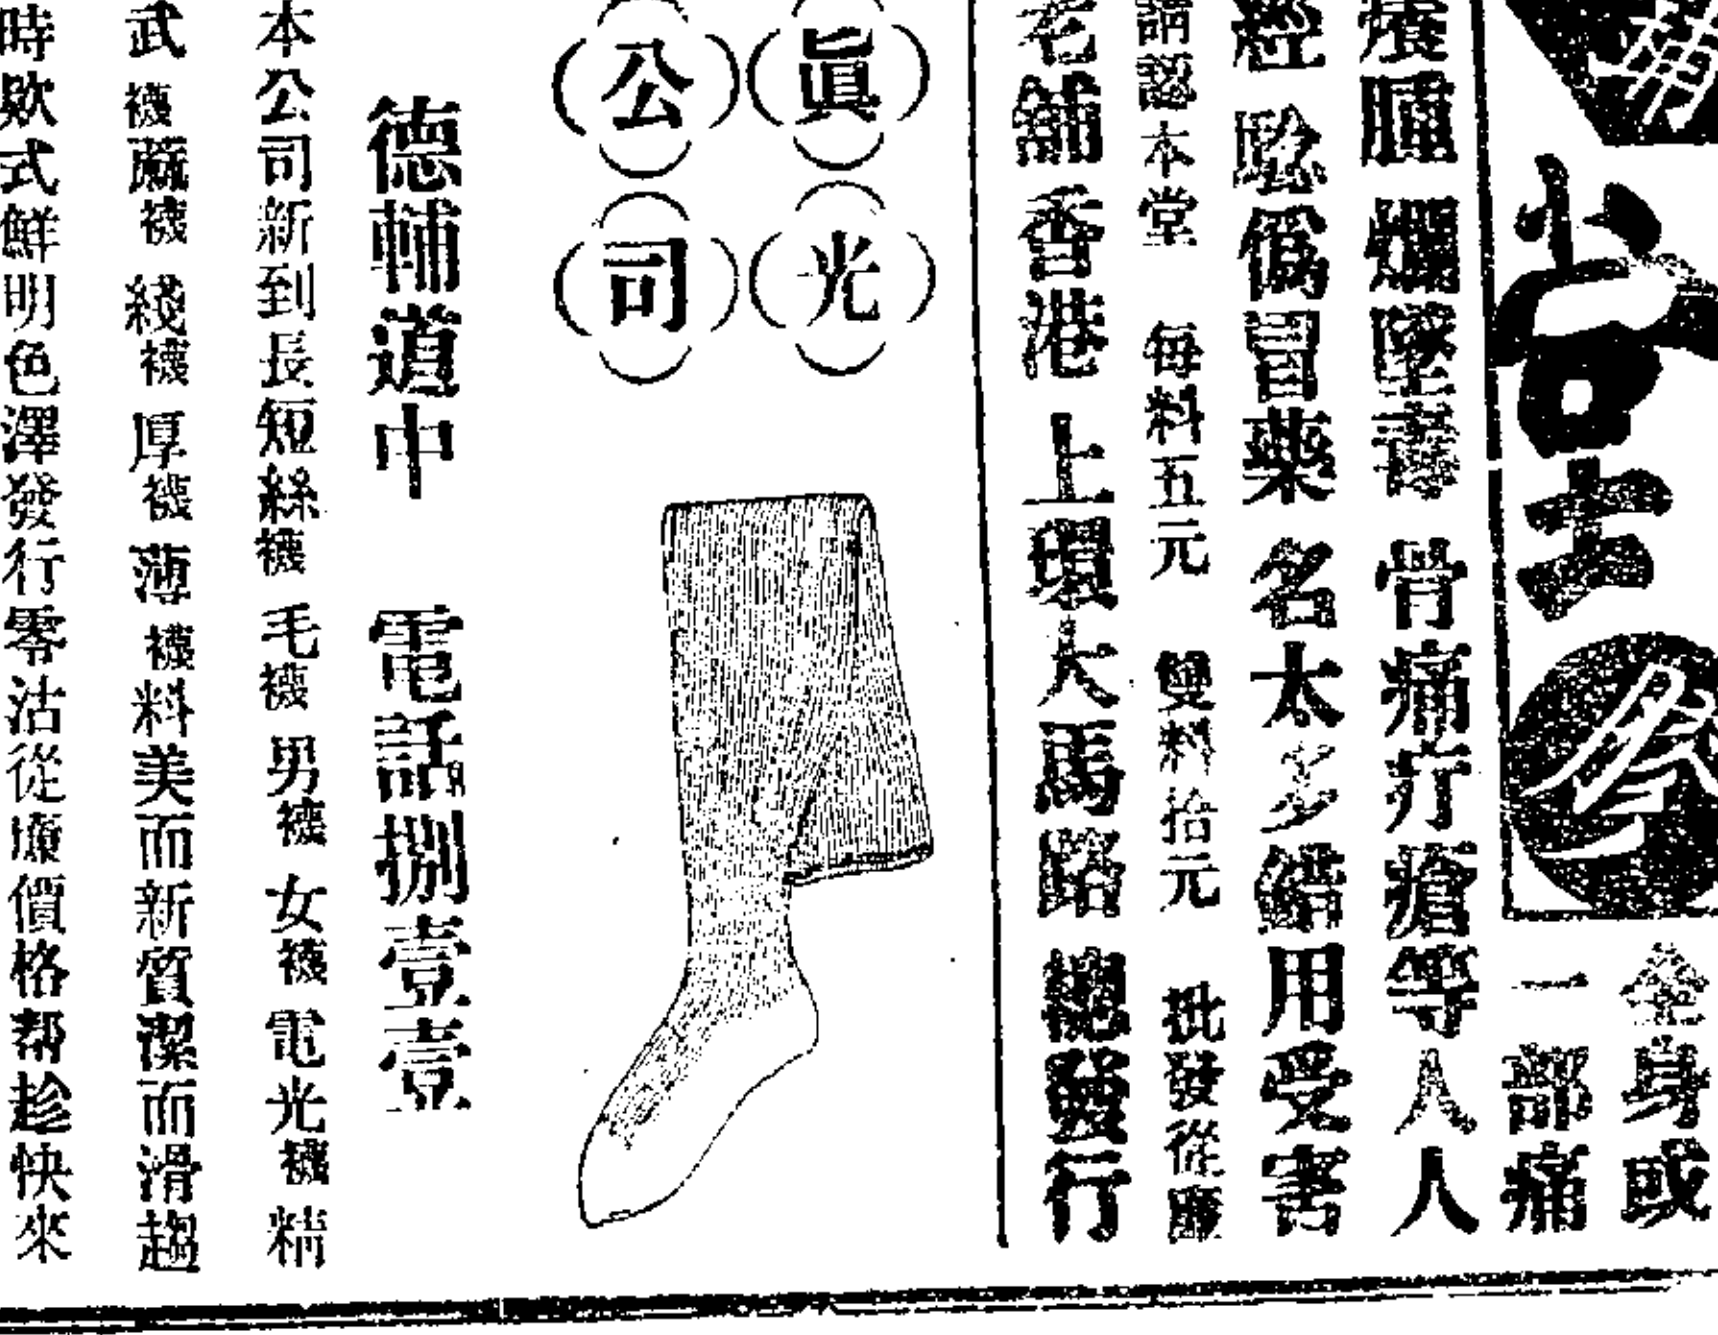 全身或
一部痛
腫爛墜
骨痛疔瘡等人人
經
偽冒藥名太多錯用受害
請認本堂 每料五元 雙料拾元 批發從廉
老舖香港上環大馬路總發行
眞光
公司
德輔道中 電話捌壹壹
本公司新到長短絲襪毛襪男襪女襪電光襪精
武襪蔴襪綫襪厚襪薄襪料美而新質潔而滑趨
時欵式鮮明色澤發行零沽從廉價格帮趁快來